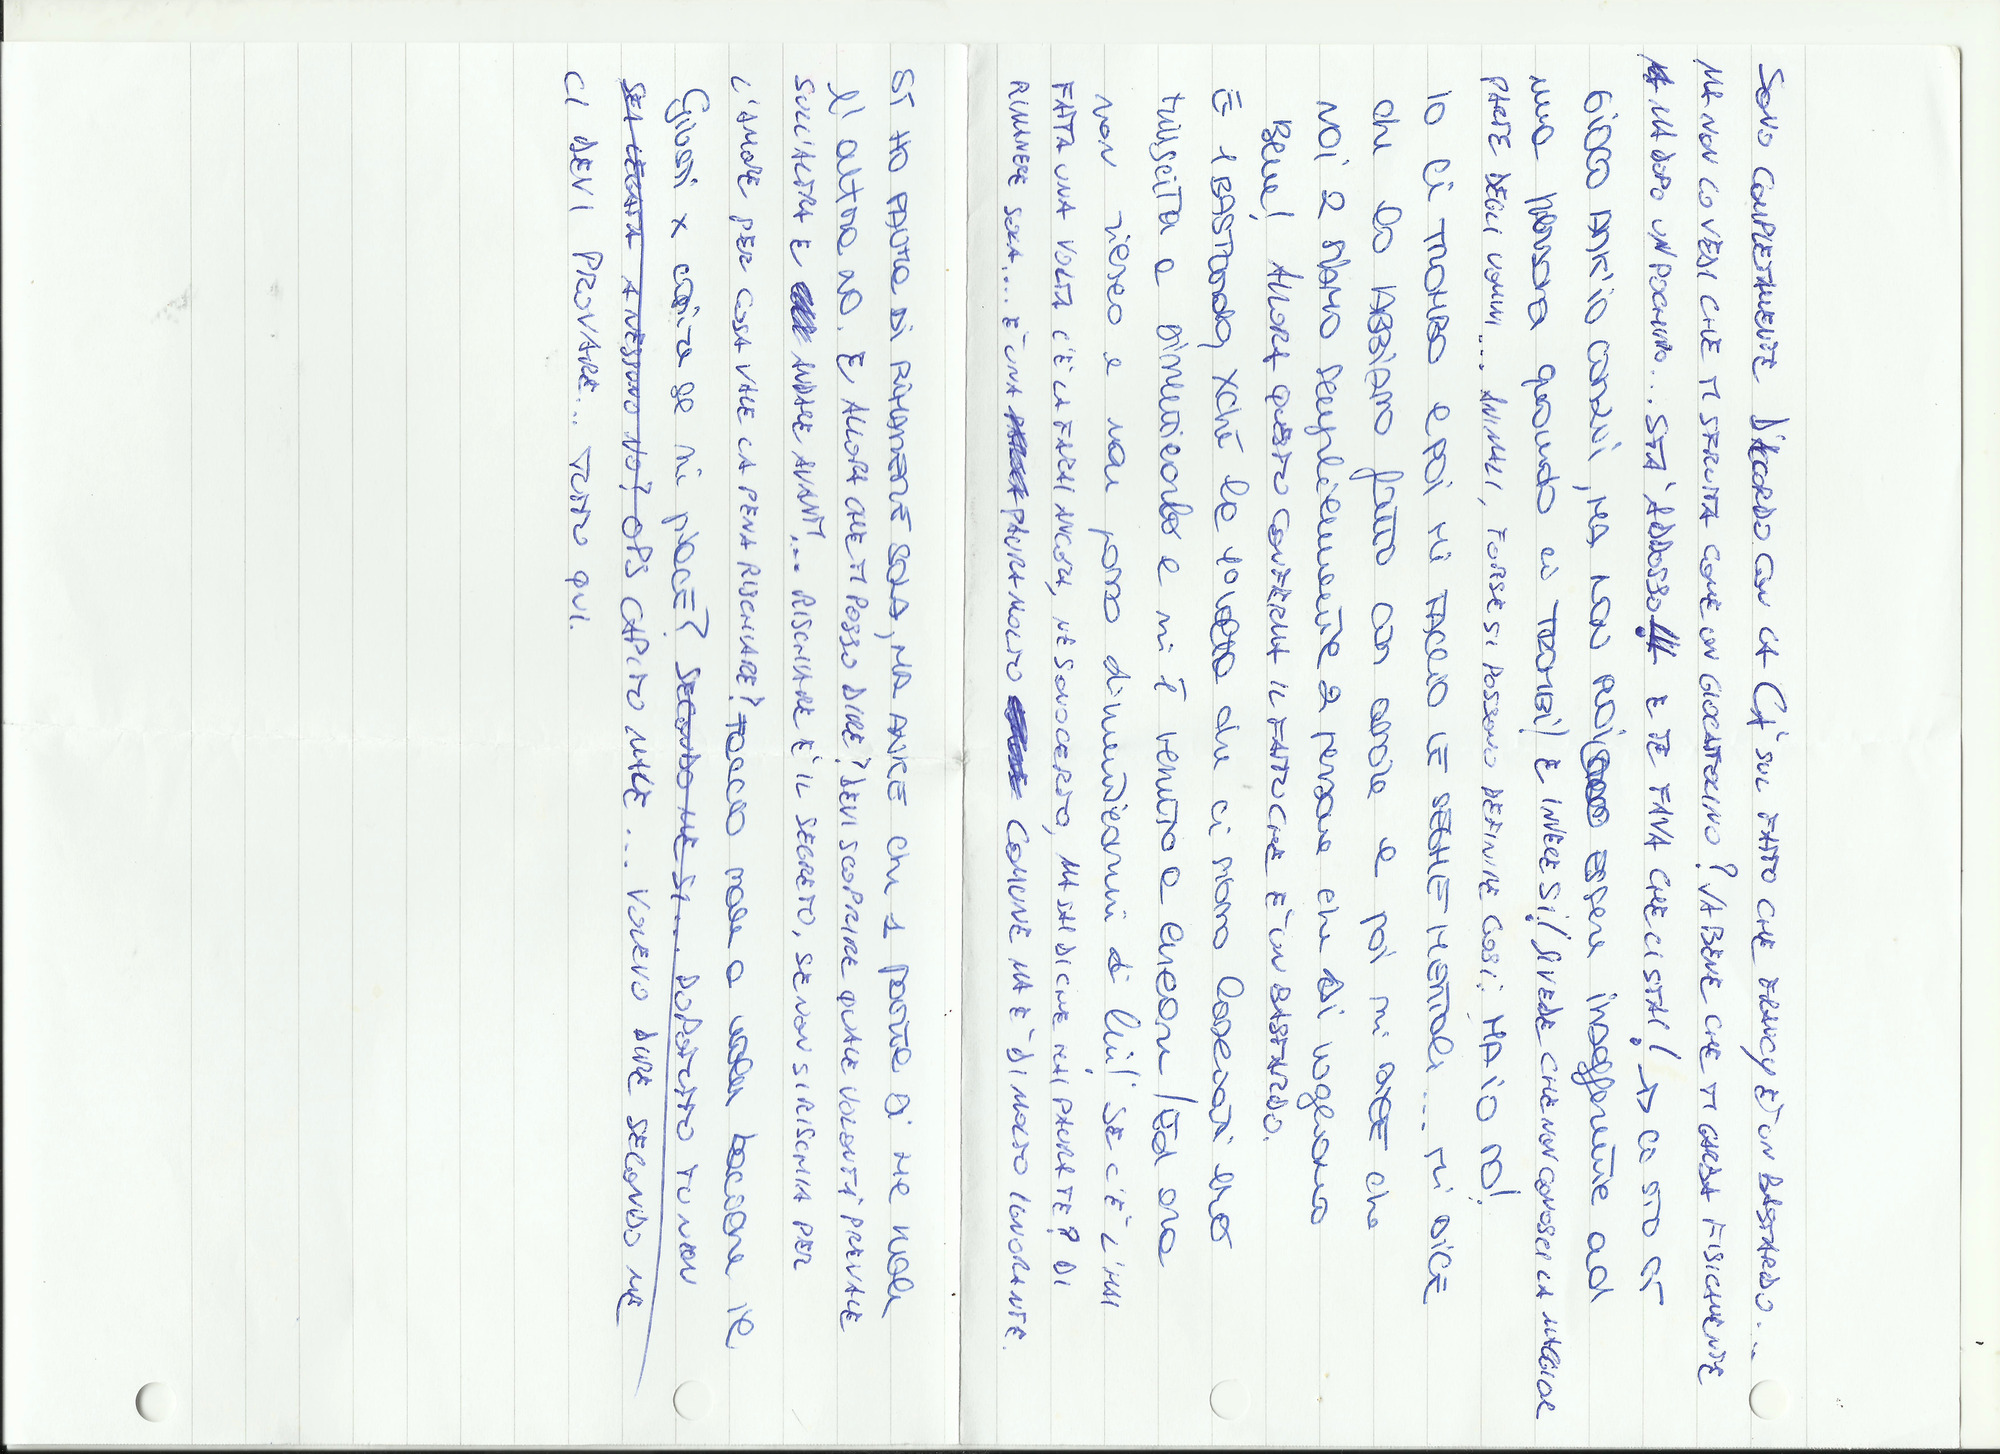 SONO COMPLETAMENTE D'ACCORDO CON LA CA' SUL FATTO CHE FRANCY E' UN BASTARDO...
MA NON LO VEDI CHE TI SFRUTTA COME UN GIOCATTOLINO? VA BENE CHE TI GARBA FISICAMENTE
MA DOPO UN POCHINO... STA' ADDOSSO!!! E TE FIVA CHE CI STAI! → LO STO AL
GIOCO ANK'IO CON LUI, MA NON PUOI ESSERE INDIFFERENTE AD
una persona quando ci TROMBI! E INVECE SI! SI VEDE CHE NON CONOSCI LA MAGGIOR
PARTE DEGLI UOMINI... ANIMALI, FORSE SI POSSONO DEFINIRE COSI'. MA IO NO!
IO CI TROMBO E POI MI FACCIO LE SEGHE MENTALI... MI DICE
che lo ABBIAMO fatto con amore e poi mi DICE che
noi 2 siamo semplicemente 2 persone che si vogliono
Bene! ALLORA QUESTO CONFERMA IL FATTO CHE E' UN BASTARDO.
È 1 BASTARDO, xché le 10 volte che ci siamo lasciati ero
riuscita a dimenticarlo e mi è venuto a cercare/ED ora
non riesco e non posso dimenticarmi di lui! SE CE L'HAI
FATTA UNA VOLTA CE LA FARAI ANCORA, NE SONO CERTO, MA SAI DI CHE HAI PAURA TE? DI
RIMANERE SOLA.... E' UNA PAURA MOLTO COMUNE MA E' DI MOLTO IGNORANTE.
SI HO PAURA DI RIMANERE SOLA, MA ANKE che 1 parte di me vuole
l'altra no. E ALLORA CHE TI POSSO DIRE? DEVI SCOPRIRE QUALE VOLONTA' PREVALE
SULL'ALTRA E ANDARE AVANTI... RISCHIARE E' IL SEGRETO, SE NON SI RISCHIA PER
L'AMORE PER COSA VALE LA PENA RISCHIARE? TOCCO male a voler baciare il
Gibasi x capire se mi piace? SECONDO ME SI... DOPOTUTTO TU NON
SEI LEGATA A NESSUNO NO? OPS CAPITO MALE... VOLEVO DIRE SECONDO ME
CI DEVI PROVARE... TUTTO QUI.